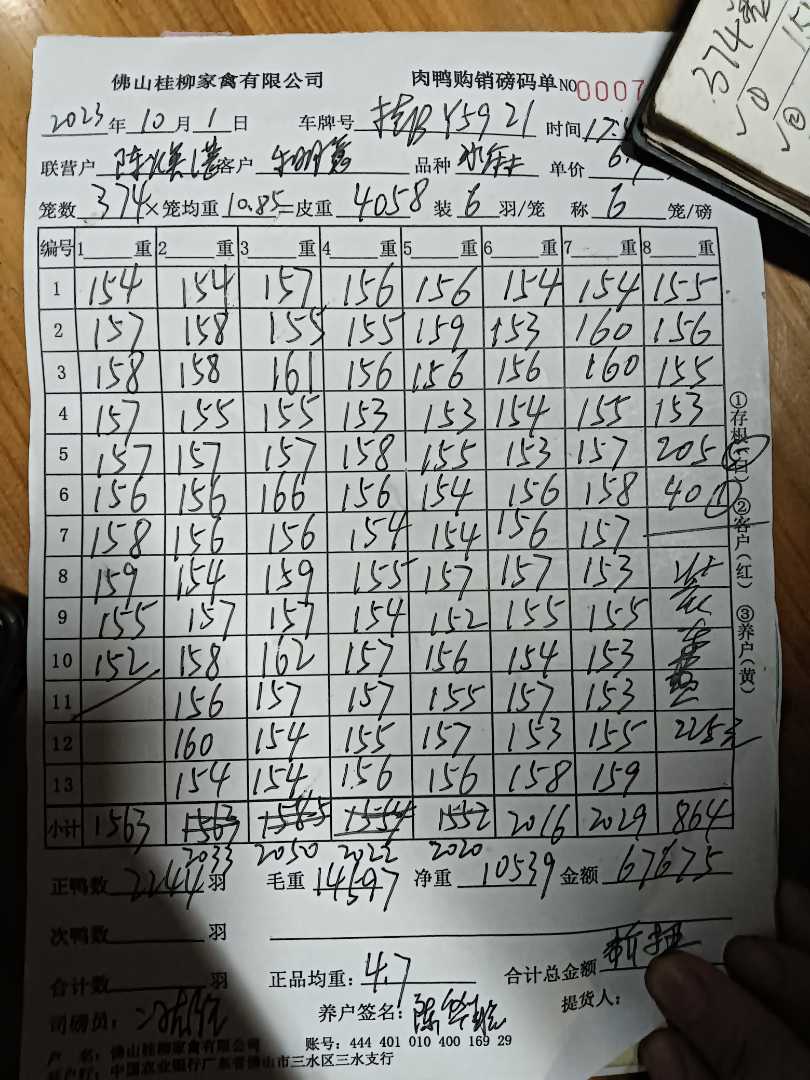 374
佛山桂柳家禽有限公司 肉鸭购销磅码单 NO 0007
2023年10月1日 车牌号 Y5921 时间 17
联营户 陈 客户 品种 单价 6
笼数 374 ×笼均重 10.85 =皮重 4058 装 6 羽/笼 称 6 笼/磅
编号 1 重 2 重 3 重 4 重 5 重 6 重 7 重 8 重
1 154 154 157 156 156 154 154 155
2 157 158 155 155 159 153 160 156
3 158 158 161 156 156 156 160 155
4 157 155 155 153 153 154 155 153
5 157 157 157 158 155 153 157 205
6 156 156 166 156 154 156 158 40
7 158 156 156 154 154 156 157
8 159 154 159 155 157 157 153
9 155 157 157 154 152 155 155
10 152 158 162 157 156 154 153
11 156 157 157 155 157 153
12 160 154 155 157 153 155 2215元
13 154 154 156 156 158 159
小计 1563 1563 1585 1554 1552 2016 2029 864
2033 2050 2022 2020
正鸭数 2244 羽 毛重 14597 净重 10539 金额 67675
次鸭数 羽
合计数 羽 正品均重：4.7 合计总金额
司磅员： 养户签名：陈 提货人：
户 名：佛山桂柳家禽有限公司 账号：444 401 010 400 169 29
开户行：中国农业银行广东省佛山市三水区三水支行
①存根（白）②客户（红）③养户（黄）